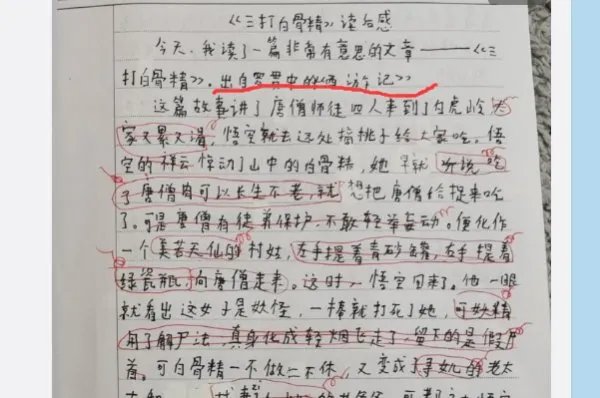 《三打白骨精》读后感
今天,我读了一篇非常有意思的文章——《三
打白骨精》。出自吴承恩的《西游记》
这篇故事讲了唐僧师徒四人来到了白虎岭,大
家又累又渴,悟空就去远处摘桃子给大家吃,悟
空的祥云惊动了山中的白骨精,她早就听说吃
了唐僧肉可以长生不老,就想把唐僧给捉来吃
了。可是唐僧有徒弟保护,不敢轻举妄动。便化作
一个美若天仙的村姑,左手提着青砂罐,右手提着
绿瓷瓶,向唐僧走来。这时,悟空回来了。他一眼
就看出这女子是妖怪,一棒就打死了她,可妖精
用了解尸法,真身化成轻烟飞走了,留下的是假尸
首。可白骨精一不做二不休,又变成了寻女儿的老太